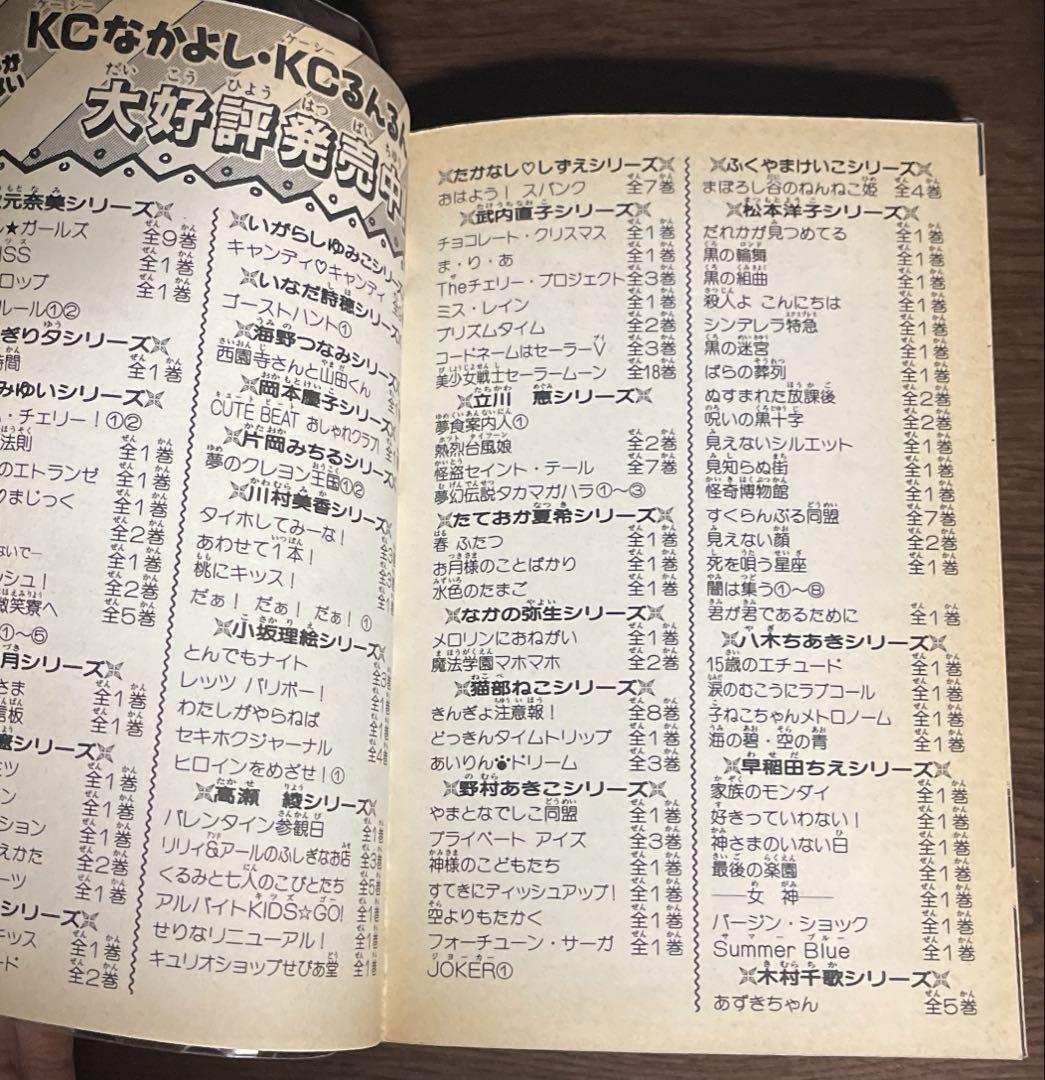 KCなかよし・KCるんるん
大好評発売中
元奈美シリーズ
★ガールズ 全9巻
ISS 全1巻
ロップ 全1巻
ルール①②
ぎり夕シリーズ
時間 全1巻
みゆいシリーズ
・チェリー!①②
法則 全1巻
のエトランゼ 全1巻
まじっく 全1巻
全2巻
ないで― 全1巻
ッシュ! 全2巻
微笑寮へ 全5巻
①〜⑤
月シリーズ
さま 全1巻
信板 全1巻
恵シリーズ
ミツ 全1巻
ン 全1巻
ション 全1巻
えかた 全2巻
ーツ 全1巻
シリーズ
キッス 全1巻
ード 全2巻
いがらしゆみこシリーズ
キャンディ♡キャンディ
いなだ詩穂シリーズ
ゴーストハント①
海野つなみシリーズ
西園寺さんと山田くん
岡本慶子シリーズ
CUTE BEAT おしゃれクラブ!
片岡みちるシリーズ
夢のクレヨン王国①②
川村美香シリーズ
タイホしてみーな!
あわせて1本!
桃にキッス!
だぁ!だぁ!だぁ!①
小坂理絵シリーズ
とんでもナイト
レッツ パリポー!
わたしがやらねば
セキホクジャーナル 全4巻
ヒロインをめざせ!①
高瀬 綾シリーズ
バレンタイン参観日 全1巻
リリィ&アールのふしぎなお店 全3巻
くるみと七人のこびとたち 全5巻
アルバイトKIDS☆GO! 全1巻
せりなリニューアル! 全1巻
キュリオショップせぴあ堂 全1巻
たかなし♡しずえシリーズ
おはよう!スパンク 全7巻
武内直子シリーズ
チョコレート・クリスマス 全1巻
ま・り・あ 全1巻
Theチェリー・プロジェクト 全3巻
ミス・レイン 全1巻
プリズムタイム 全2巻
コードネームはセーラーV 全3巻
美少女戦士セーラームーン 全18巻
立川 恵シリーズ
夢食案内人①
熱烈台風娘 全2巻
怪盗セイント・テール 全7巻
夢幻伝説タカマガハラ①〜③
たておか夏希シリーズ
春 ふたつ 全1巻
お月様のことばかり 全1巻
水色のたまご 全1巻
なかの弥生シリーズ
メロリンにおねがい 全1巻
魔法学園マホマホ 全2巻
猫部ねこシリーズ
きんぎょ注意報! 全8巻
どっきんタイムトリップ 全1巻
あいりん🐾ドリーム 全3巻
野村あきこシリーズ
やまとなでしこ同盟 全2巻
プライベート アイズ 全3巻
神様のこどもたち 全1巻
すてきにディッシュアップ! 全1巻
空よりもたかく 全1巻
フォーチューン・サーガ 全1巻
JOKER①
ふくやまけいこシリーズ
まぼろし谷のねんねこ姫 全4巻
松本洋子シリーズ
だれかが見つめてる 全1巻
黒の輪舞 全1巻
黒の組曲 全1巻
殺人よ こんにちは 全1巻
シンデレラ特急 全1巻
黒の迷宮 全1巻
ばらの葬列 全1巻
ぬすまれた放課後 全2巻
呪いの黒十字 全1巻
見えないシルエット 全1巻
見知らぬ街 全1巻
怪奇博物館 全1巻
すくらんぶる同盟 全7巻
見えない顔 全2巻
死を唄う星座 全1巻
闇は集う①〜⑧
君が君であるために 全1巻
八木ちあきシリーズ
15歳のエチュード 全1巻
涙のむこうにラブコール 全1巻
子ねこちゃんメトロノーム 全1巻
海の碧・空の青 全1巻
早稲田ちえシリーズ
家族のモンダイ 全1巻
好きっていわない! 全1巻
神さまのいない日 全1巻
最後の楽園 全1巻
――女 神―― 全1巻
バージン・ショック 全1巻
Summer Blue 全1巻
木村千歌シリーズ
あずきちゃん 全5巻